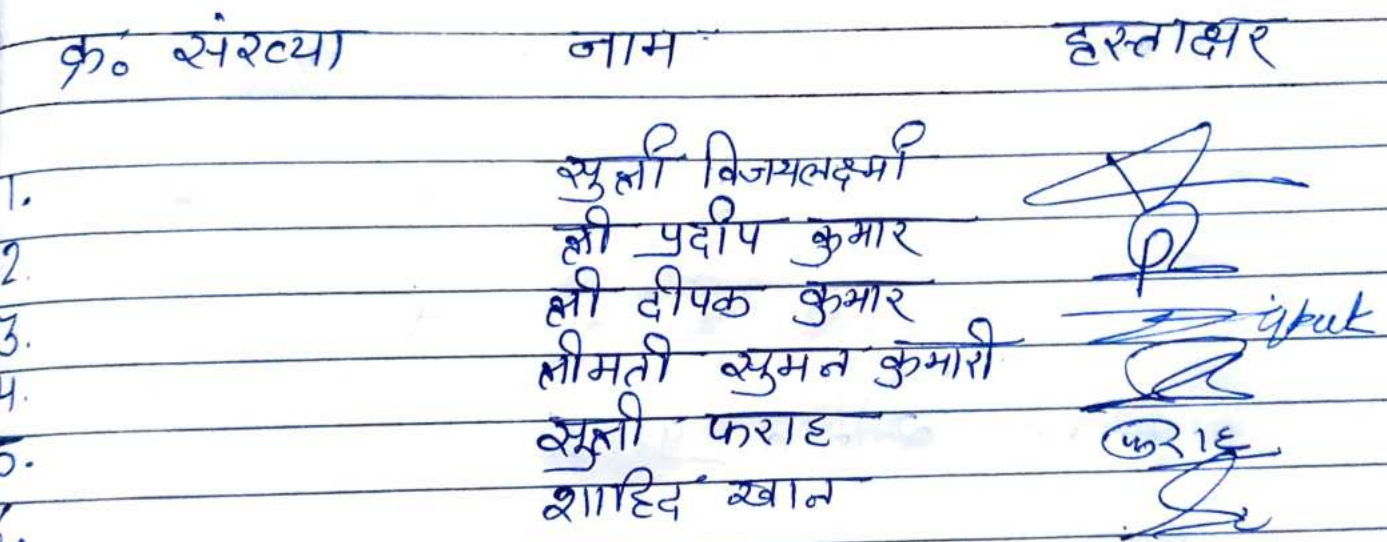 क्र० संख्या नाम हस्ताक्षर
1. सुश्री विजयलक्ष्मी
2. श्री प्रदीप कुमार
3. श्री दीपक कुमार
4. श्रीमती सुमन कुमारी
5. सुश्री फराह फराह
शाहिद खान